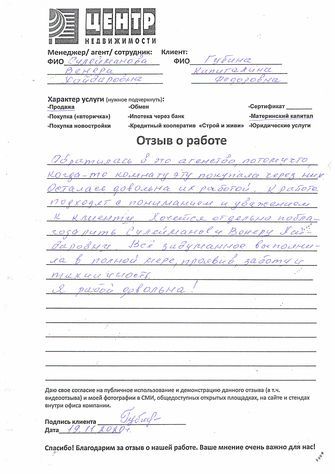 ЦЕНТР
НЕДВИЖИМОСТИ
Менеджер/ агент/ сотрудник: Клиент:
ФИО Сулейманова ФИО Губина
Венера Капиталина
Хайдаровна Федоровна
Характер услуги (нужное подчеркнуть):
-Продажа -Обмен -Сертификат
-Покупка («вторичка») -Ипотека через банк -Материнский капитал
-Покупка новостройки -Кредитный кооператив «Строй и живи» -Юридические услуги
Отзыв о работе
Обратилась в это агенство, потому что,
когда-то комнату эту покупала через них
Осталась довольна их работой. К работе
подходят с пониманием и уважением
к клиенту. Хочется отдельно побла-
годарить Сулейманову Венеру Хай-
даровну. Всё задуманное выполни-
ла в полной мере, проявив заботу и
тактичность.
Я работой довольна!
Даю свое согласие на публичное использование и демонстрацию данного отзыва (в т.ч.
видеоотзыва) и моей фотографии в СМИ, общедоступных открытых площадках, на сайте и стендах
внутри офиса компании.
Подпись клиента
Дата 19.11.2020г.
Спасибо! Благодарим за отзыв о нашей работе. Ваше мнение очень важно для нас!